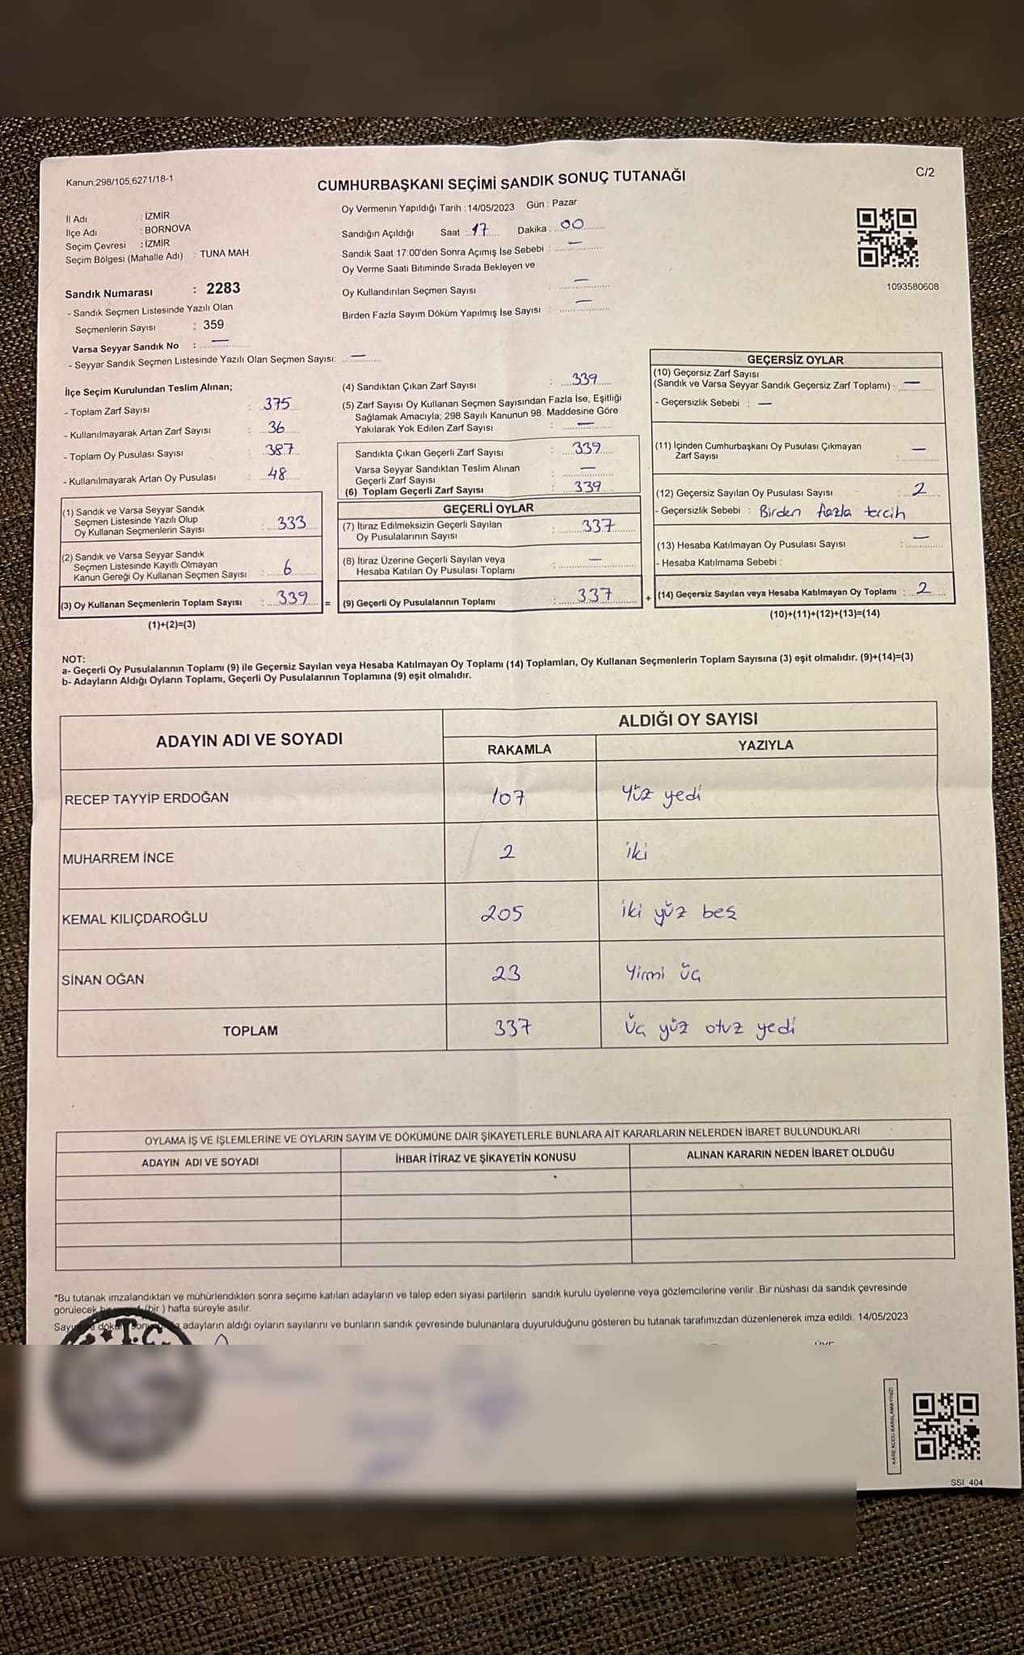 Kanun;298/105,6271/18-1
C/2
CUMHURBAŞKANI SEÇİMİ SANDIK SONUÇ TUTANAĞI
İl Adı : İZMİR
İlçe Adı : BORNOVA
Seçim Çevresi : İZMİR
Seçim Bölgesi (Mahalle Adı) : TUNA MAH
Sandık Numarası : 2283
- Sandık Seçmen Listesinde Yazılı Olan
Seçmenlerin Sayısı : 359
Varsa Seyyar Sandık No : —
- Seyyar Sandık Seçmen Listesinde Yazılı Olan Seçmen Sayısı: —
Oy Vermenin Yapıldığı Tarih : 14/05/2023 Gün : Pazar
Sandığın Açıldığı Saat : 17 Dakika : 00
Sandık Saat 17:00'den Sonra Açımış İse Sebebi : —
Oy Verme Saati Bitiminde Sırada Bekleyen ve
Oy Kullandırılan Seçmen Sayısı : —
Birden Fazla Sayım Döküm Yapılmış İse Sayısı : —
1093580608
İlçe Seçim Kurulundan Teslim Alınan;
- Toplam Zarf Sayısı : 375
- Kullanılmayarak Artan Zarf Sayısı : 36
- Toplam Oy Pusulası Sayısı : 387
- Kullanılmayarak Artan Oy Pusulası : 48
(1) Sandık ve Varsa Seyyar Sandık
Seçmen Listesinde Yazılı Olup
Oy Kullanan Seçmenlerin Sayısı : 333
(2) Sandık ve Varsa Seyyar Sandık
Seçmen Listesinde Kayıtlı Olmayan
Kanun Gereği Oy Kullanan Seçmen Sayısı : 6
(3) Oy Kullanan Seçmenlerin Toplam Sayısı : 339 =
(1)+(2)=(3)
(4) Sandıktan Çıkan Zarf Sayısı : 339
(5) Zarf Sayısı Oy Kullanan Seçmen Sayısından Fazla İse, Eşitliği
Sağlamak Amacıyla; 298 Sayılı Kanunun 98. Maddesine Göre
Yakılarak Yok Edilen Zarf Sayısı : —
Sandıkta Çıkan Geçerli Zarf Sayısı : 339
Varsa Seyyar Sandıktan Teslim Alınan
Geçerli Zarf Sayısı : —
(6) Toplam Geçerli Zarf Sayısı : 339
GEÇERLİ OYLAR
(7) İtiraz Edilmeksizin Geçerli Sayılan
Oy Pusulalarının Sayısı : 337
(8) İtiraz Üzerine Geçerli Sayılan veya
Hesaba Katılan Oy Pusulası Toplamı : —
(9) Geçerli Oy Pusulalarının Toplamı : 337 +
GEÇERSİZ OYLAR
(10) Geçersiz Zarf Sayısı
(Sandık ve Varsa Seyyar Sandık Geçersiz Zarf Toplamı) : —
- Geçersizlik Sebebi : —
(11) İçinden Cumhurbaşkanı Oy Pusulası Çıkmayan
Zarf Sayısı : —
(12) Geçersiz Sayılan Oy Pusulası Sayısı : 2
- Geçersizlik Sebebi : Birden fazla tercih
(13) Hesaba Katılmayan Oy Pusulası Sayısı : —
- Hesaba Katılmama Sebebi :
(14) Geçersiz Sayılan veya Hesaba Katılmayan Oy Toplamı : 2
(10)+(11)+(12)+(13)=(14)
NOT:
a- Geçerli Oy Pusulalarının Toplamı (9) ile Geçersiz Sayılan veya Hesaba Katılmayan Oy Toplamı (14) Toplamları, Oy Kullanan Seçmenlerin Toplam Sayısına (3) eşit olmalıdır. (9)+(14)=(3)
b- Adayların Aldığı Oyların Toplamı, Geçerli Oy Pusulalarının Toplamına (9) eşit olmalıdır.
ADAYIN ADI VE SOYADI
ALDIĞI OY SAYISI
RAKAMLA YAZIYLA
RECEP TAYYİP ERDOĞAN 107 Yüz yedi
MUHARREM İNCE 2 iki
KEMAL KILIÇDAROĞLU 205 iki yüz beş
SİNAN OĞAN 23 Yirmi üç
TOPLAM 337 Üç yüz otuz yedi
OYLAMA İŞ VE İŞLEMLERİNE VE OYLARIN SAYIM VE DÖKÜMÜNE DAİR ŞİKAYETLERLE BUNLARA AİT KARARLARIN NELERDEN İBARET BULUNDUKLARI
ADAYIN ADI VE SOYADI İHBAR İTİRAZ VE ŞİKAYETİN KONUSU ALINAN KARARIN NEDEN İBARET OLDUĞU
*Bu tutanak imzalandıktan ve mühürlendikten sonra seçime katılan adayların ve talep eden siyasi partilerin sandık kurulu üyelerine veya gözlemcilerine verilir. Bir nüshası da sandık çevresinde
görülecek (bir) hafta süreyle asılır.
adayların aldığı oyların sayılarını ve bunların sandık çevresinde bulunanlara duyurulduğunu gösteren bu tutanak tarafımızdan düzenlenerek imza edildi. 14/05/2023
T.C.
KARE KODU KARALAMAYINIZ!
SSİ_404